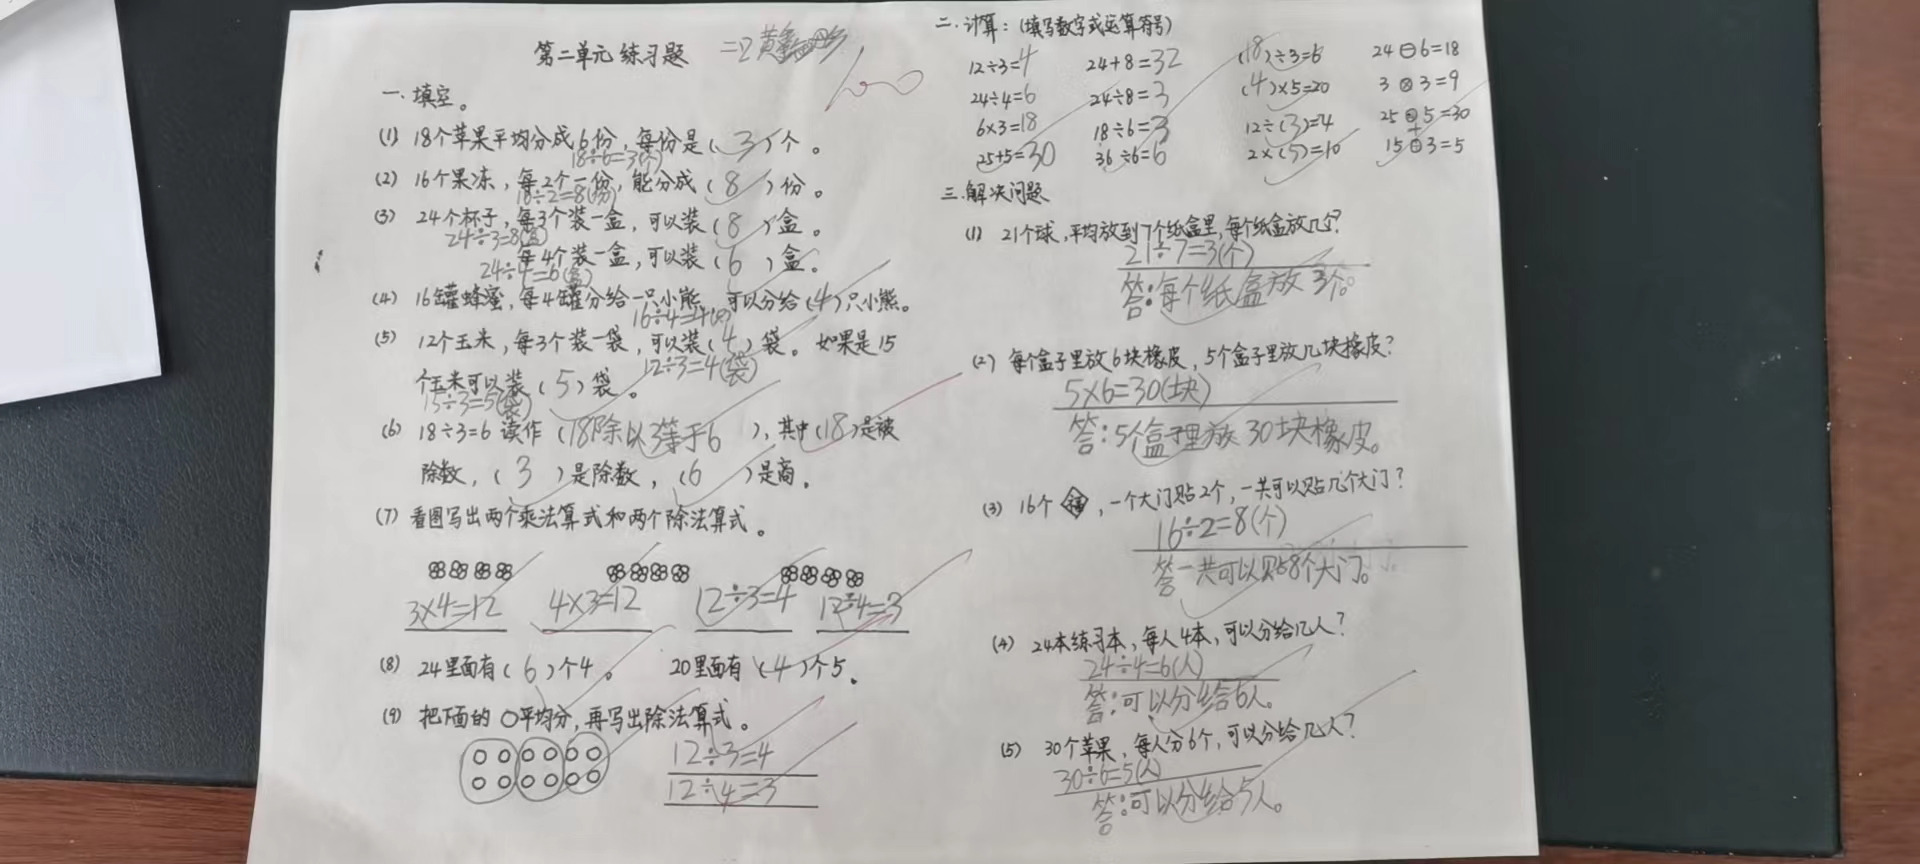 第二单元练习题
100
一.填空。
(1) 18个苹果平均分成6份，每份是(3)个。
18÷6=3(个)
(2) 16个果冻，每2个一份，能分成(8)份。
16÷2=8(份)
(3) 24个杯子，每3个装一盒，可以装(8)盒。
24÷3=8(盒)
每4个装一盒，可以装(6)盒。
24÷4=6(盒)
(4) 16罐蜂蜜，每4罐分给一只小熊，可以分给(4)只小熊。
16÷4=4(只)
(5) 12个玉米，每3个装一袋，可以装(4)袋。如果是15
12÷3=4(袋)
个玉米可以装(5)袋。
15÷3=5(袋)
(6) 18÷3=6 读作(18除以3等于6)，其中(18)是被
除数，(3)是除数，(6)是商。
(7) 看图写出两个乘法算式和两个除法算式。
3×4=12 4×3=12 12÷3=4 12÷4=3
(8) 24里面有(6)个4。 20里面有(4)个5。
(9) 把下面的○平均分，再写出除法算式。
12÷3=4
12÷4=3
二.计算：(填写数字或运算符号)
12÷3=4 24+8=32 (18)÷3=6 24⊖6=18
24÷4=6 24÷8=3 (4)×5=20 3⊗3=9
6×3=18 18÷6=3 12÷(3)=4 25 + 5=30
25+5=30 36÷6=6 2×(5)=10 15÷3=5
三.解决问题
(1) 21个球，平均放到7个纸盒里，每个纸盒放几个?
21÷7=3(个)
答：每个纸盒放3个。
(2) 每个盒子里放6块橡皮，5个盒子里放几块橡皮?
5×6=30(块)
答：5个盒子里放30块橡皮。
(3) 16个福，一个大门贴2个，一共可以贴几个大门?
16÷2=8(个)
答一共可以贴8个大门。
(4) 24本练习本，每人4本，可以分给几人?
24÷4=6(人)
答：可以分给6人。
(5) 30个苹果，每人分6个，可以分给几人?
30÷6=5(人)
答：可以分给5人。